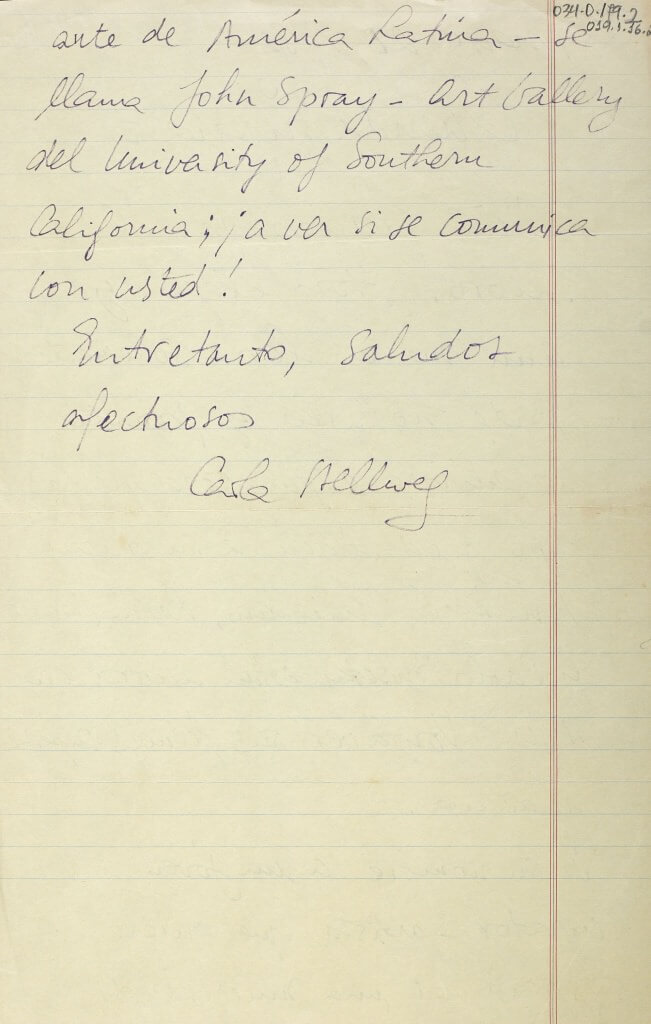 034-D.119.2
arte de América Latina – se
llama John Spray – Art Gallery
del University of Southern
California; ¡a ver si se comunica
con usted!
Entretanto, saludos
afectuosos
Carla Stellweg